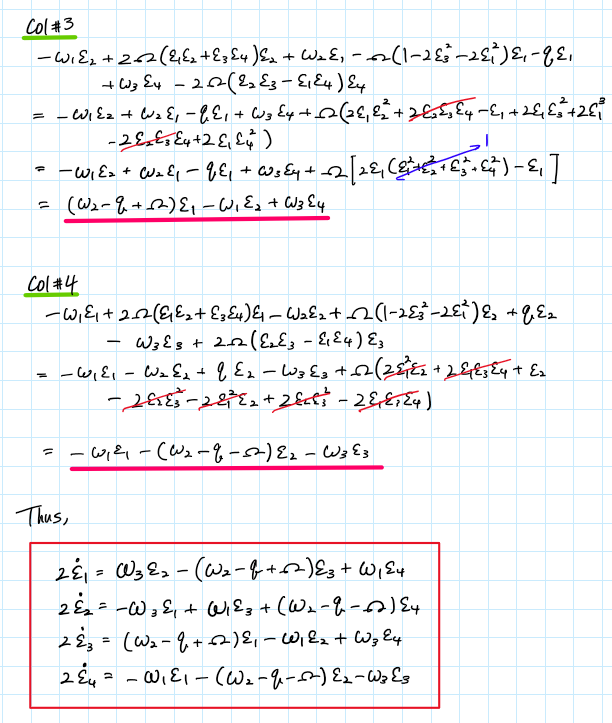 Col#3
-ω₁ε₂ + 2Ω(ε₁ε₂+ε₃ε₄)ε₂ + ω₂ε₁ - Ω(1-2ε₃²-2ε₁²)ε₁ - qε₁
+ω₃ε₄ - 2Ω(ε₂ε₃ - ε₁ε₄)ε₄
= -ω₁ε₂ + ω₂ε₁ - qε₁ + ω₃ε₄ + Ω(2ε₁ε₂² + 2ε₂ε₃ε₄ - ε₁ + 2ε₁ε₃² + 2ε₁³
- 2ε₂ε₃ε₄ + 2ε₁ε₄²)
1
= -ω₁ε₂ + ω₂ε₁ - qε₁ + ω₃ε₄ + Ω[2ε₁(ε₁²+ε₂²+ε₃²+ε₄²) - ε₁]
= (ω₂ - q + Ω)ε₁ - ω₁ε₂ + ω₃ε₄
Col#4
-ω₁ε₁ + 2Ω(ε₁ε₂+ε₃ε₄)ε₁ - ω₂ε₂ + Ω(1-2ε₃²-2ε₁²)ε₂ + qε₂
- ω₃ε₃ + 2Ω(ε₂ε₃ - ε₁ε₄)ε₃
= -ω₁ε₁ - ω₂ε₂ + qε₂ - ω₃ε₃ + Ω(2ε₁²ε₂ + 2ε₁ε₃ε₄ + ε₂
- 2ε₂ε₃² - 2ε₁²ε₂ + 2ε₂ε₃² - 2ε₁ε₃ε₄)
= -ω₁ε₁ - (ω₂ - q - Ω)ε₂ - ω₃ε₃
Thus,
2ε̇₁ = ω₃ε₂ - (ω₂ - q + Ω)ε₃ + ω₁ε₄
2ε̇₂ = -ω₃ε₁ + ω₁ε₃ + (ω₂ - q - Ω)ε₄
2ε̇₃ = (ω₂ - q + Ω)ε₁ - ω₁ε₂ + ω₃ε₄
2ε̇₄ = -ω₁ε₁ - (ω₂ - q - Ω)ε₂ - ω₃ε₃